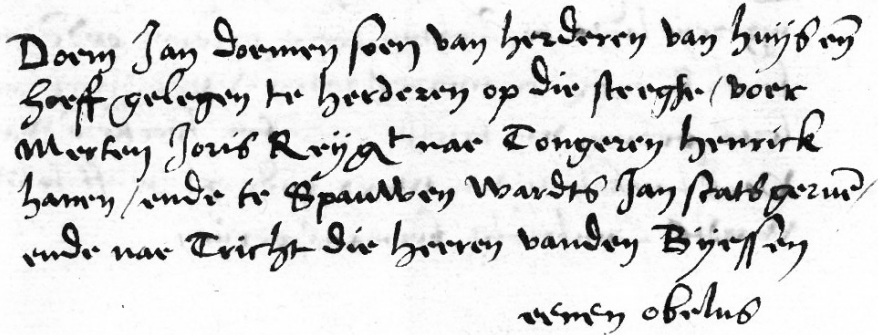 Doem Jan doemen soen van herderen van huijs en̄
hoeff gelegen te herderen op die steegke / voer
Merten Joris Reyg^t nae Tongeren henrick
hanen / ende te Spauwen wardts Jan scats geruē /
ende nae Tricht die heeren vanden Bijessen
eenen obelus